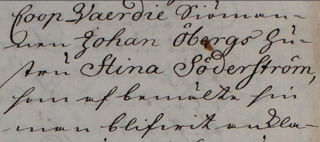 Coop Vaerdie Siöman-
nen Johan Öbergs Hu-
stru Stina Söderström,
som af bemälte sin
man blifvit ankla-